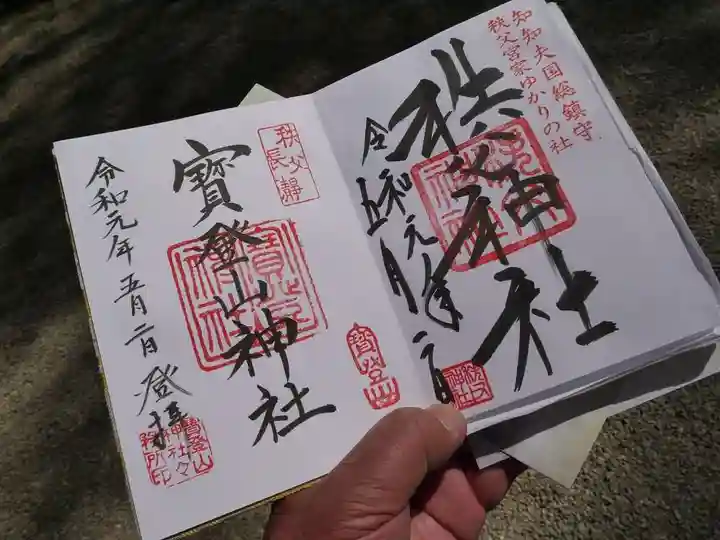 知知夫国総鎮守
秩父宮家ゆかりの社
秩父神社
令和元年
五月二日
秩父
長瀞
寳登山神社
令和元年五月二日登拝
寳登山
寳登山
神社々
務所印